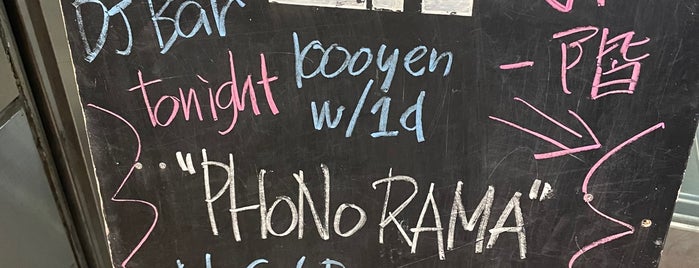 DJ Bar
tonight 1000yen
w/1d
一階
"PHONO RAMA"